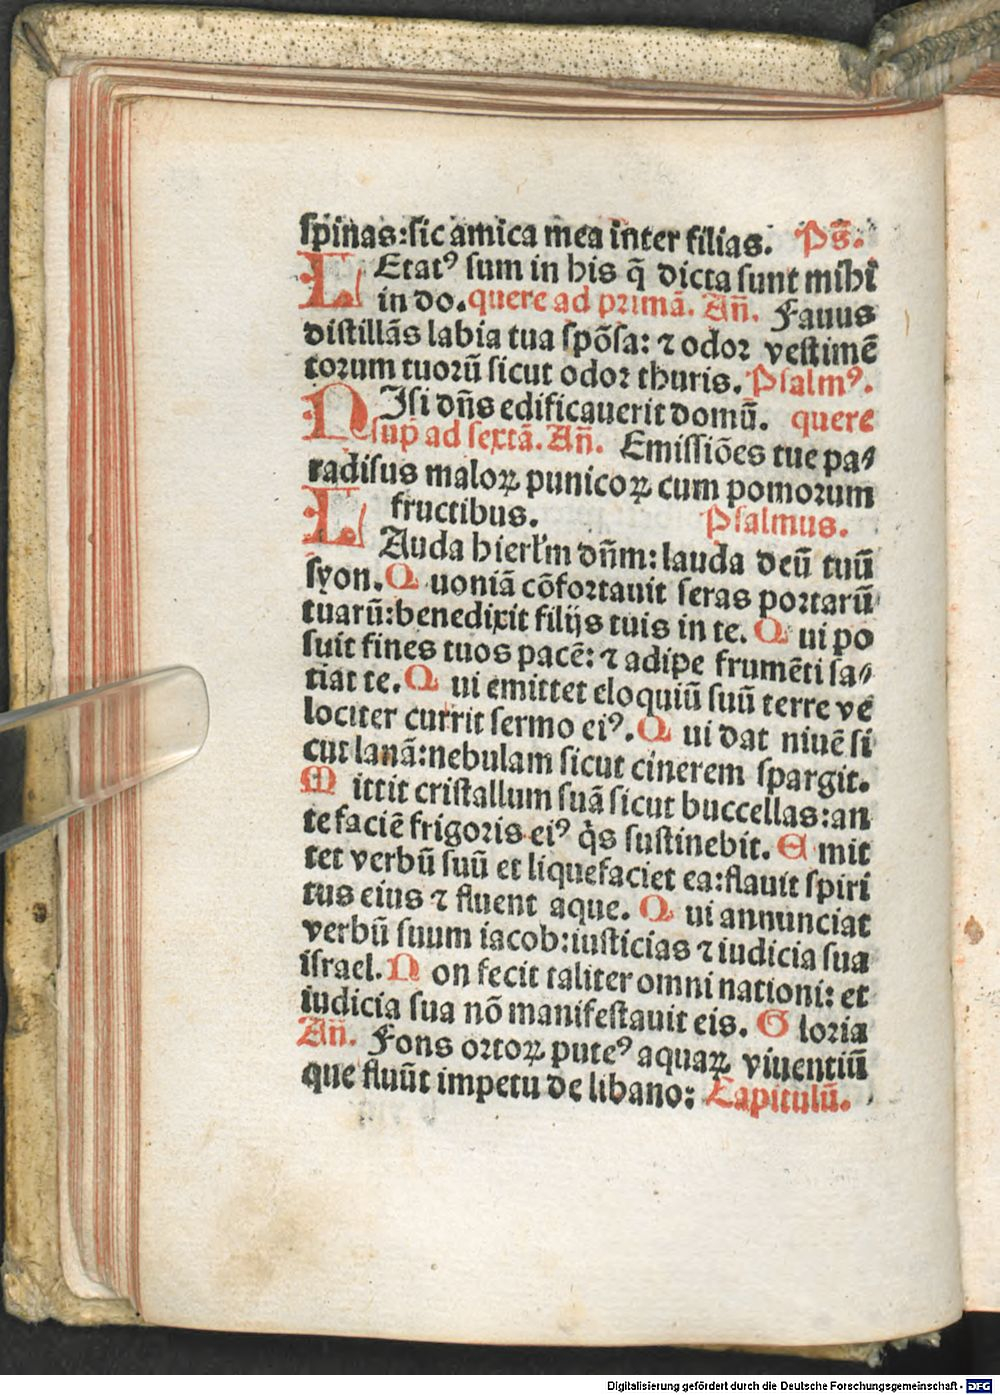 spinas:sic amica mea inter filias. Ps̄.
LEtatꝰ sum in his q̄ dicta sunt mihi
in do. quere ad primā. An̄. Fauus
distillās labia tua spōsa: ⁊ odor vestimē
torum tuorū sicut odor thuris. Psalmꝰ.
NIsi dn̄s edificauerit domū. quere
sup̄ ad sextā. An̄. Emissiōes tue pa⸗
radisus maloꝝ punicoꝝ cum pomorum
fructibus. Psalmus.
LAuda hierl̄m dn̄m: lauda deū tuū
syon. Quoniā cōfortauit seras portarū
tuarū:benedixit filijs tuis in te. Qui po
suit fines tuos pacē: ⁊ adipe frumēti sa⸗
tiat te. Qui emittet eloquiū suū terre ve
lociter currit sermo eiꝰ. Qui dat niuē si
cut lanā:nebulam sicut cinerem spargit.
Mittit cristallum suā sicut buccellas:an
te faciē frigoris eiꝰ qͥs sustinebit. Emit
tet verbū suū et liquefaciet ea:flauit spiri
tus eius ⁊ fluent aque. Qui annunciat
verbū suum iacob:iusticias ⁊ iudicia sua
israel. Non fecit taliter omni nationi: et
iudicia sua nō manifestauit eis. Gloria
An̄. Fons ortoꝝ puteꝰ aquaꝝ viuentiū
que fluūt impetu de libano: Capitulū.
Digitalisierung gefördert durch die Deutsche Forschungsgemeinschaft - DFG